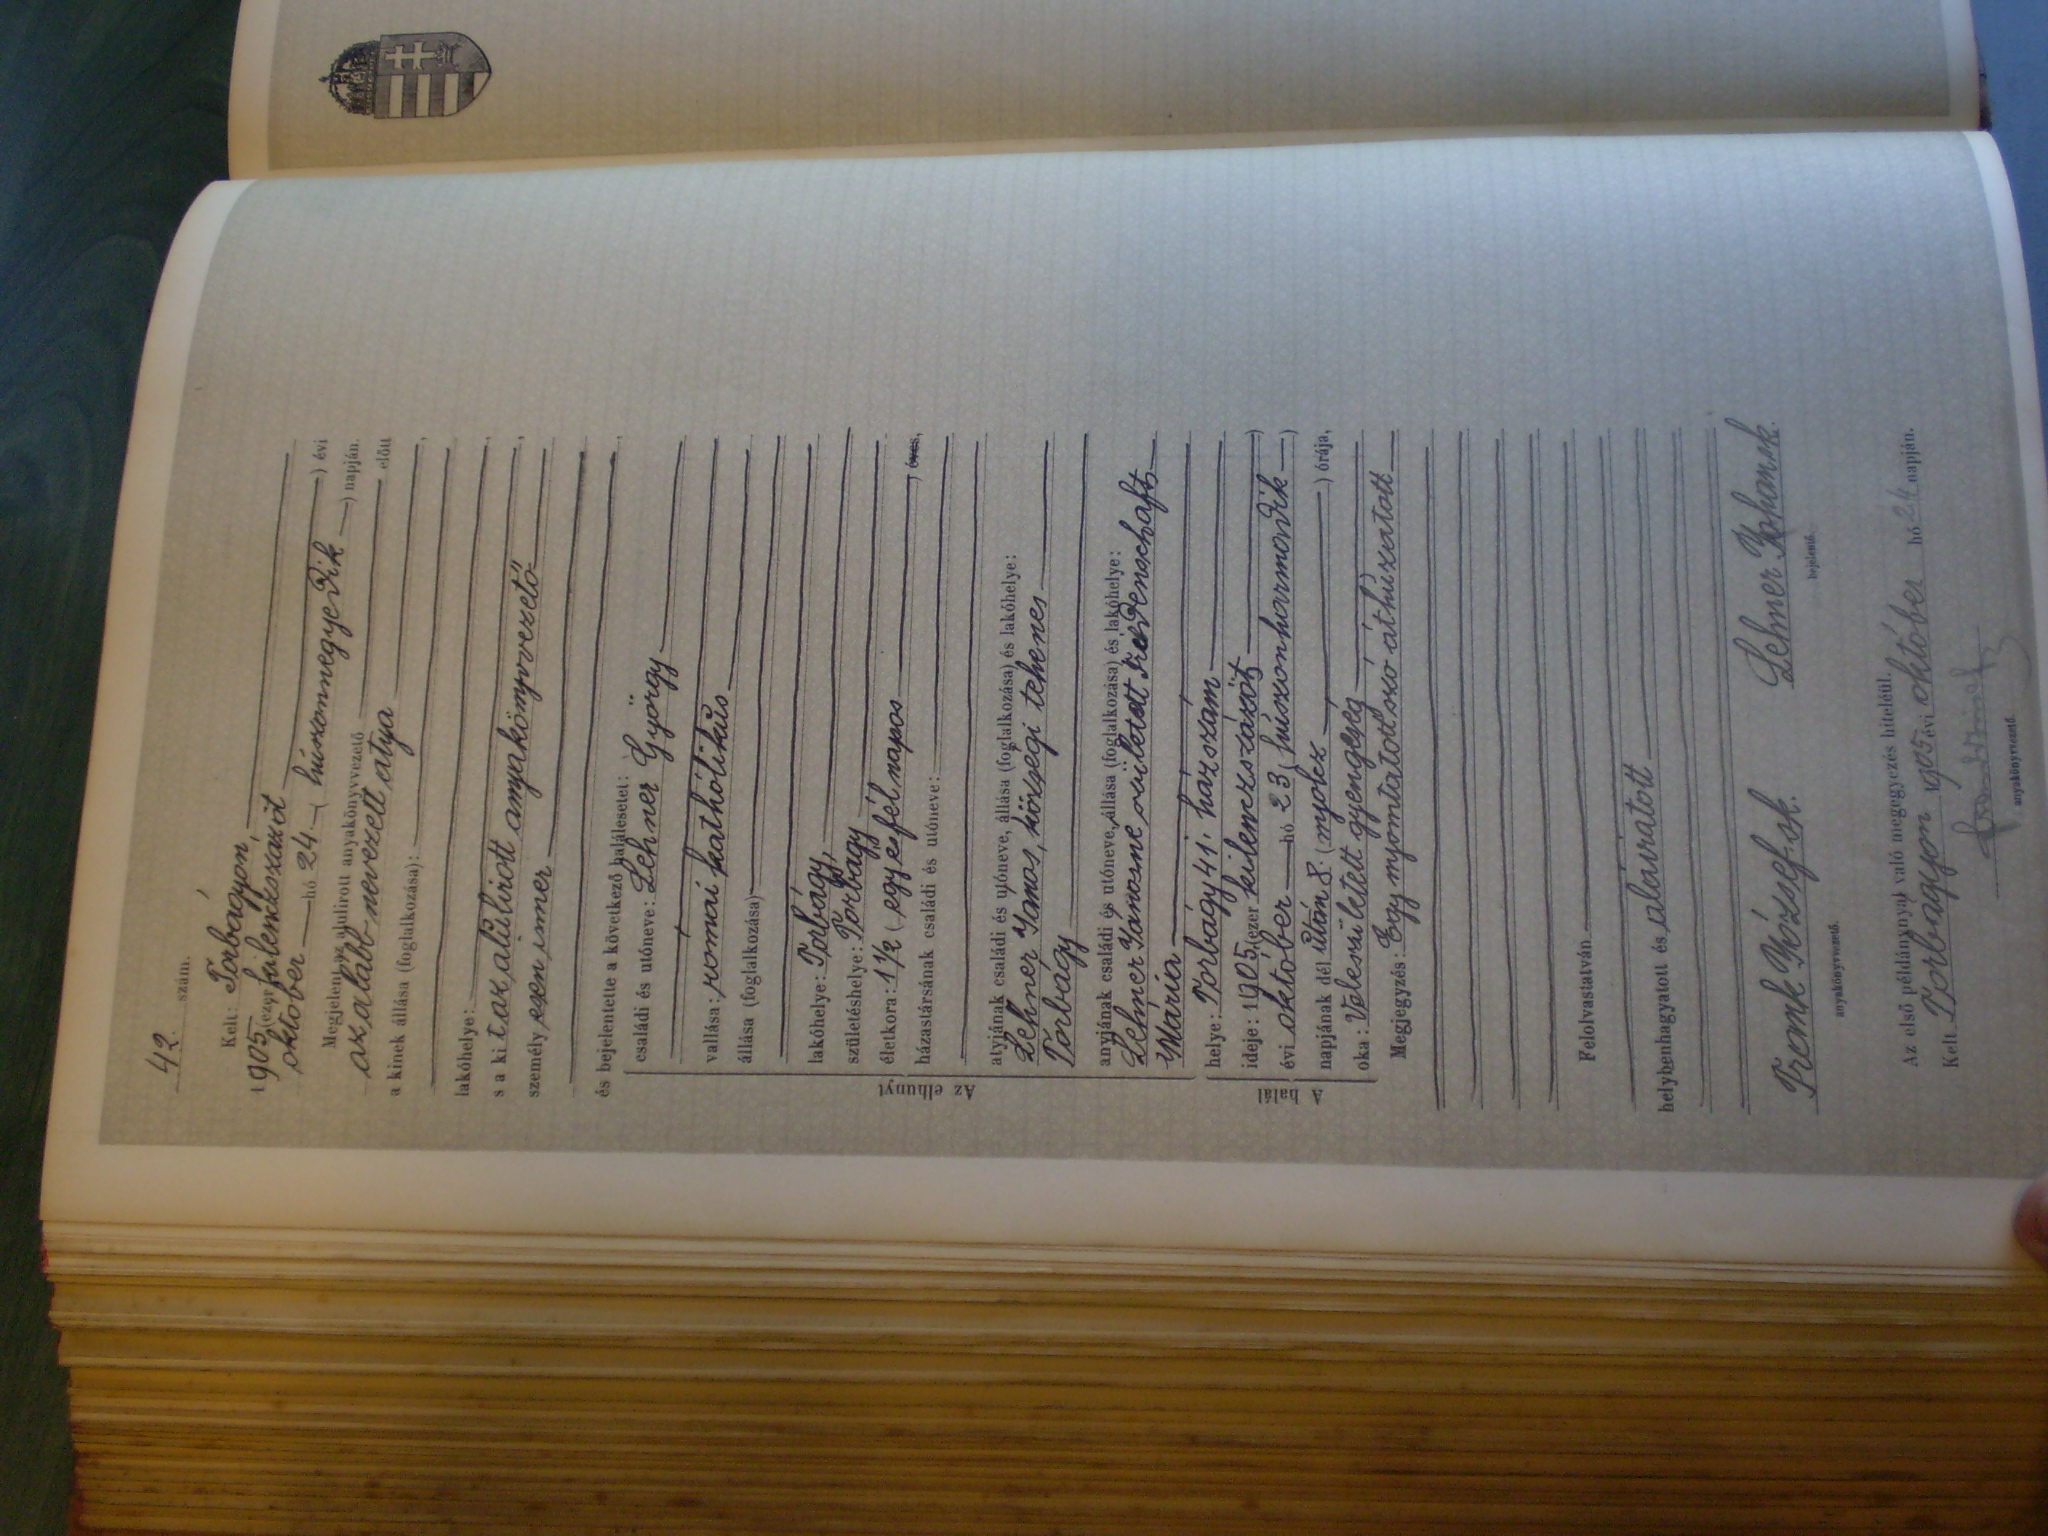 42. szám.
Kelt: Torbágyon,
1905 (ezer kilenczszázöt) évi
október hó 24. (húszonnegyedik) napján.
Megjelent az alulirott anyakönyvvezető előtt
az alább nevezett atya
a kinek állása (foglalkozása):
lakóhelye:
s a kit az alulirott anyakönyvvezető
személyesen ismer
és bejelentette a következő halálesetet:
családi és utóneve: Lehner György
vallása: római katholikus
állása (foglalkozása)
lakóhelye: Torbágy,
születéshelye: Torbágy,
életkora: 1 1/2 (egy és fél napos), éves,
házastársának családi és utóneve:
Az elhunyt
atyjának családi és utóneve, állása (foglalkozása) és lakóhelye:
Lehner János, községi tehenes
Torbágy
anyjának családi és utóneve, állása (foglalkozása) és lakóhelye:
Lehner Jánosné született
Mária
helye: Torbágy 41. házszám
ideje: 1905 (ezer kilenczszázöt)
évi október hó 23 (húszonharmondik)
napjának dél után 8. (nyolcz) órája,
oka: Veleszületett gyengeség
A halál
Megjegyzés: Egy nyomtatott szó áthúzatott
Felolvastatván
helybenhagyatott és aláíratott
Fronk József sk. Lehner Johansk.
anyakönyvvezető. bejelentő.
Az első példánynyal való megegyezés hiteléül.
Kelt Torbágyon 1905 évi október hó 24 napján.
anyakönyvvezető.